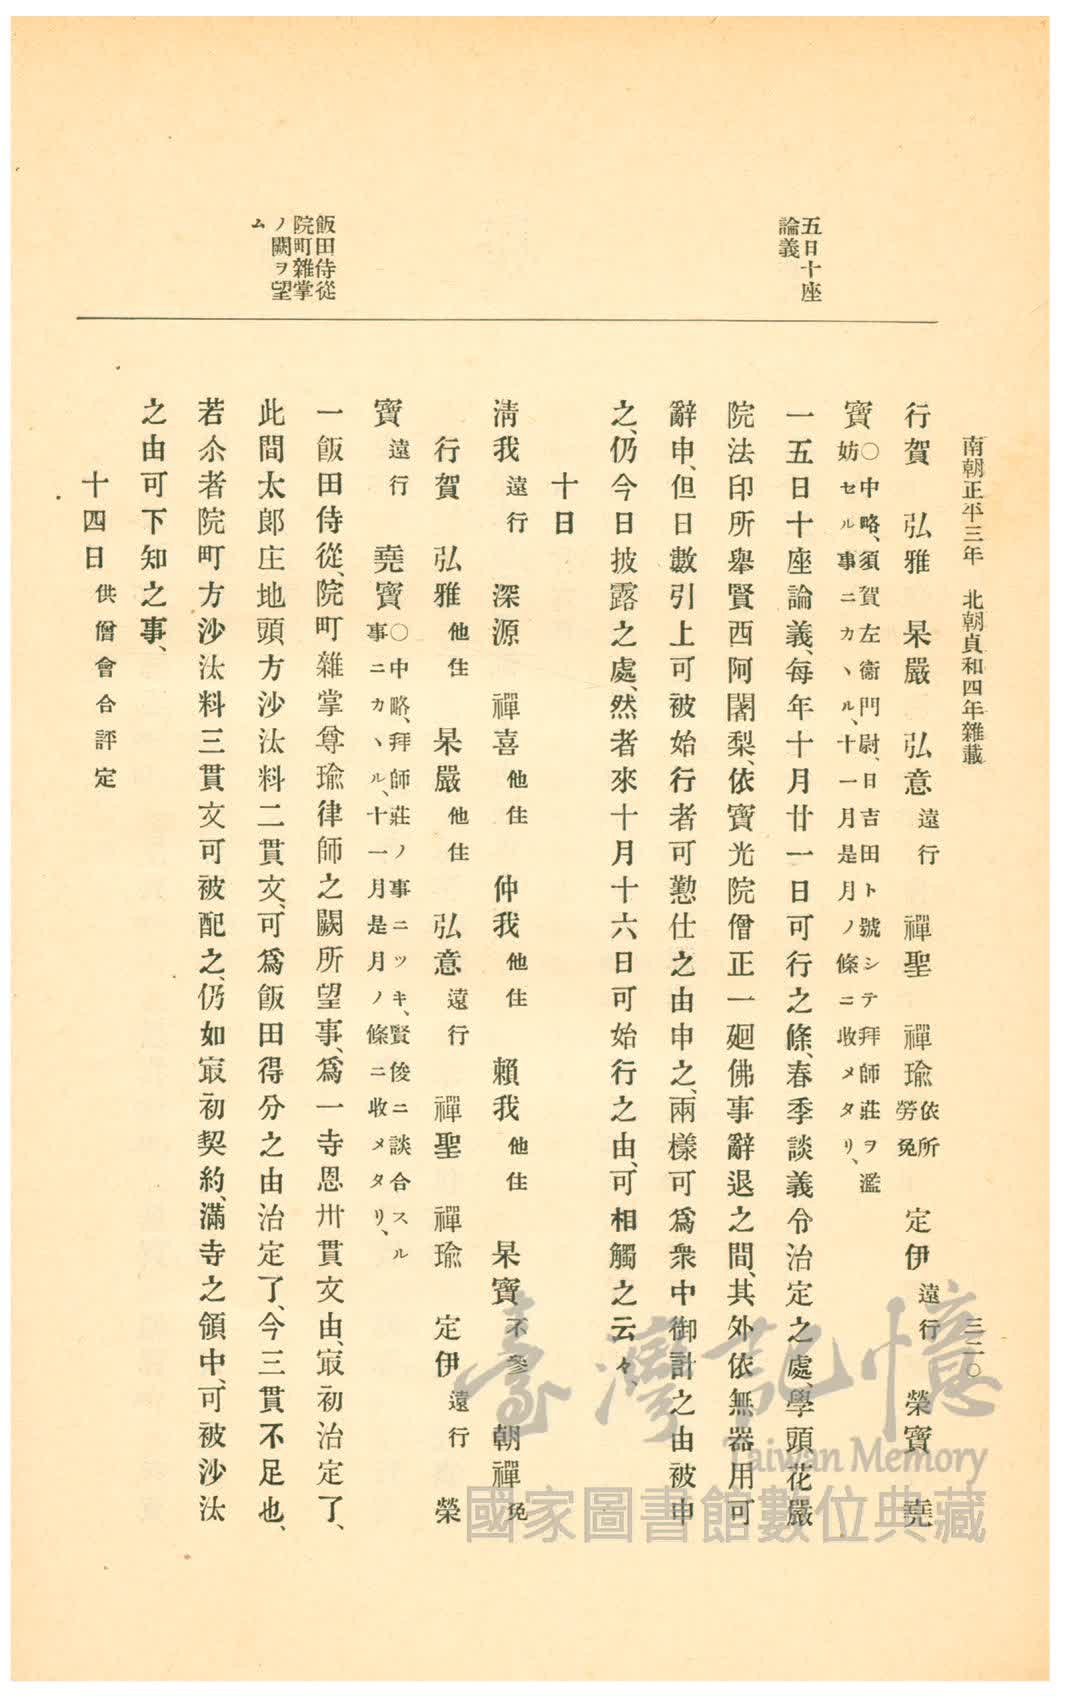 南朝正平三年　北朝貞和四年雜載　三二〇
五日十座
論義
飯田侍從
院町雜掌
ノ闕ヲ望
ム
行賀　弘雅　杲嚴　弘意遠行　禪聖　禪瑜依所勞免　定伊遠行　榮寶　堯
寶〇中略、須賀左衞門尉、日吉田ト號シテ拜師莊ヲ濫妨セル事ニカヽル、十一月是月ノ條ニ收メタリ、
一五日十座論義、每年十月廿一日可行之條、春季談義令治定之處、學頭花嚴
院法印所擧賢西阿闍梨、依寶光院僧正一廻佛事辭退之間、其外依無器用可
辭申、但日數引上可被始行者可懃仕之由申之、兩樣可爲衆中御計之由被申
之、仍今日披露之處、然者來十月十六日可始行之由、可相觸之云々、
十日
淸我遠行　深源　禪喜他住　仲我他住　賴我他住　杲寶不參　朝禪免
行賀　弘雅他住　杲嚴他住　弘意遠行　禪聖　禪瑜　定伊遠行　榮
寶遠行　堯寶〇中略、拜師莊ノ事ニツキ、賢俊ニ談合スル事ニカヽル、十一月是月ノ條ニ收メタリ、
一飯田侍從、院町雜掌尊瑜律師之闕所望事、爲一寺恩卅貫文由、㝡初治定了、
此間太郞庄地頭方沙汰料二貫文、可爲飯田得分之由治定了、今三貫不足也、
若尒者院町方沙汰料三貫文可被配之、仍如㝡初契約、滿寺之領中、可被沙汰
之由可下知之事、
十四日供僧會合評定
臺灣記憶
Taiwan Memory
國家圖書館數位典藏